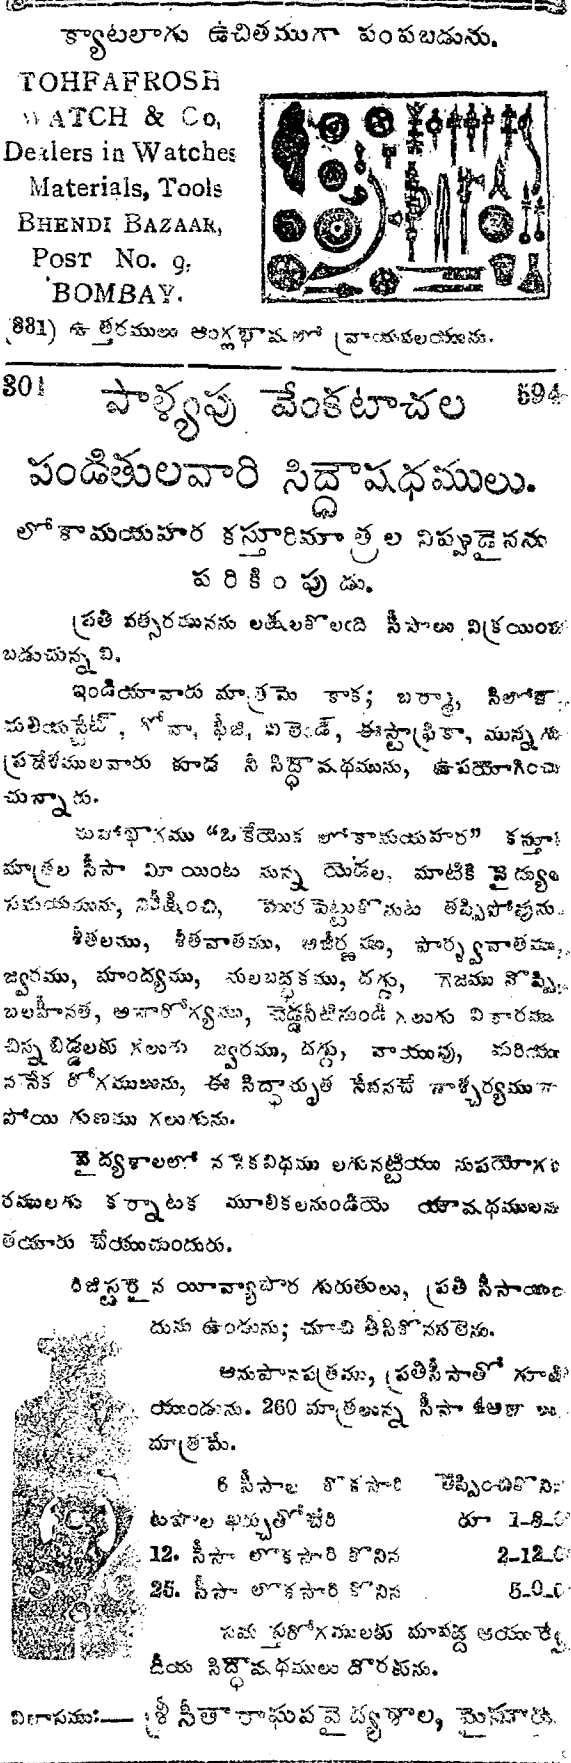 క్యాటలాగు ఉచితముగా పంపబడును.
TOHFAFROSH
WATCH & Co,
Dealers in Watches
Materials, Tools
BHENDI BAZAAR,
POST No. 9.
BOMBAY.
(881) ఉత్తరములు ఆంగ్లభాషలో వ్రాయవలయును.
301 పాళ్యపు వేంకటాచల 594
పండితులవారి సిద్ధౌషధములు.
లోకామయహర కస్తూరిమాత్రల నిప్పుడైనను
పరికింపుడు.
ప్రతి వత్సరమునను లక్షలకొలది సీసాలు విక్రయింప
బడుచున్నవి.
ఇండియావారు మాత్రమె కాక; బర్మా, సిలోను,
మలియస్టేట్, గోవా, ఫీజి, ఈస్టాఫ్రికా, మున్నగు
ప్రదేశములవారు కూడ నీ సిద్ధౌషధమును, ఉపయోగించు
చున్నారు.
మహాభాగము "ఒకేయొక లోకామయహర" కస్తూరి
మాత్రల సీసా మీయింట నున్న యెడల, మాటికి వైద్యుల
సమయమును, నిరీక్షించి, మొరపెట్టుకొనుట తప్పిపోవును.
శీతలము, శీతవాతము, అజీర్ణము, పార్శ్వవాతము,
జ్వరము, మాంద్యము, మలబద్ధకము, దగ్గు, గెజము నొప్పి,
బలహీనత, అనారోగ్యము, చెడ్డనీటినుండి గలుగు వికారము
చిన్నబిడ్డలకు గలుగు జ్వరము, దగ్గు, వాయువు, మరియు
ననేక రోగములును, ఈ సిద్ధామృత సేవనచే నాశ్చర్యముగా
పోయి గుణము గలుగును.
వైద్యశాలలో ననేకవిధము లగునట్టియు నుపయోగక
రములగు కర్నాటక మూలికలనుండియె యౌషధములను
తయారు చేయుచుందురు.
రిజిస్టరైన యీవ్యాపార గురుతులు, ప్రతి సీసాయం
దును ఉండును; చూచి తీసికొనవలెను.
అనుపానపత్రము, ప్రతిసీసాతో గూడి
యుండును. 260 మాత్రలున్న సీసా 4అణా లు
మాత్రమే.
6 సీసాల నొకసారి తెప్పించికొనిన
టపాల ఖర్చుతోచేరి రూ 1-8-0
12. సీసా లొకసారి కొనిన 2-12-0
25. సీసా లొకసారి కొనిన 5-0-0
సమస్తరోగములకు మావద్ద ఆయుర్వే
దీయ సిద్ధౌషధములు దొరకును.
విలాసము:— శ్రీ సీతారాఘవవైద్యశాల, మైసూరు.